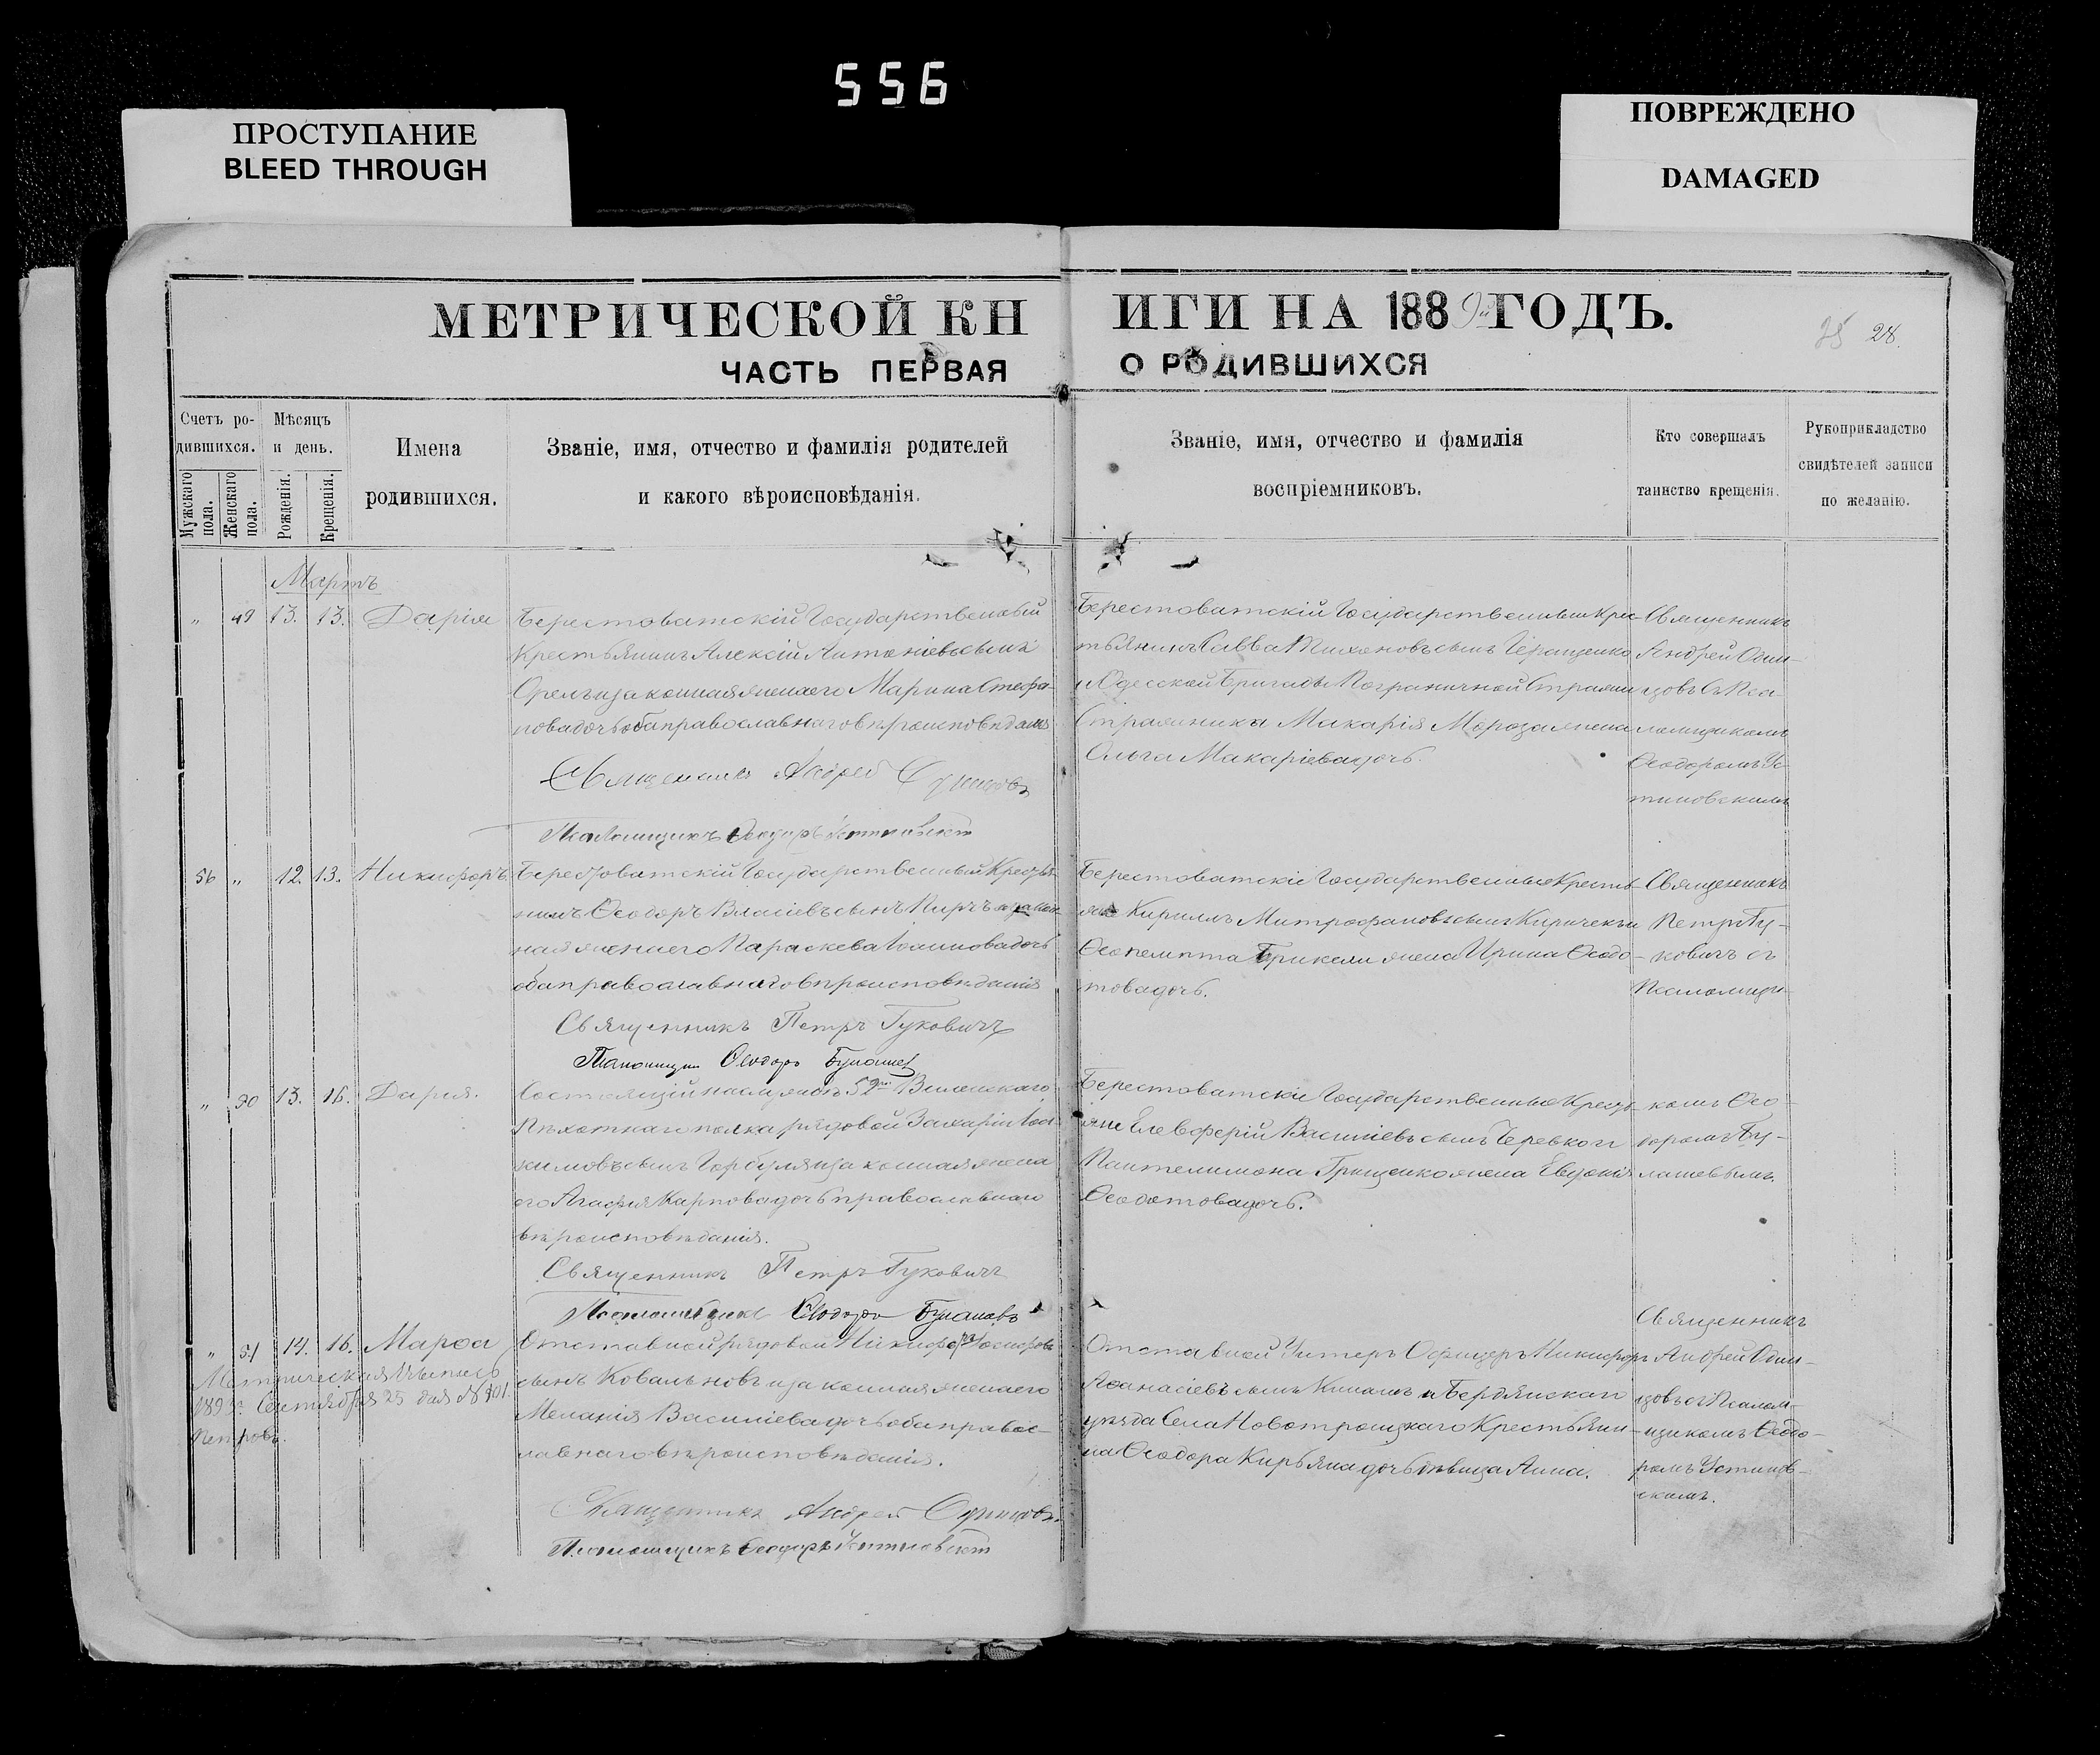 556
ПРОСТУПАНИЕ
BLEED THROUGH
ПОВРЕЖДЕНО
DAMAGED
МЕТРИЧЕСКОЙ КНИГИ НА 1889й ГОДЪ.
28.
ЧАСТЬ ПЕРВАЯ О РОДИВШИХСЯ
Счетъ ро-
дившихся.
Мужскаго пола.
Женскаго пола.
Мѣсяцъ
и день.
Рожденія.
Крещенія.
Имена
родившихся.
Званіе, имя, отчество и фамилія родителей
и какого вѣроисповѣданія.
Званіе, имя, отчество и фамилія
воспріемниковъ.
Кто совершалъ
таинство крещенія.
Рукоприкладство
свидѣтелей записи
по желанію.
Мартъ
" 49 13. 13. Дарія
Берестоватскій Государственный
Крестьянинъ Алексій Антоніевъ сынъ
Орелъ и законная жена его Марина Стефа-
нова дочь оба православнаго вѣроисповѣданія
Священникъ Андрей Одинцовъ
Псаломщикъ Ѳеодоръ Устиновскій
Берестоватскій Государственный Крес-
тьянинъ Савва Тихоновъ сынъ Геращенко
и Одесской Бригады Пограничной Стражи
Стражника Макарія Мороза жена
Ольга Макаріева дочь.
Священникъ
Андрей Один-
цовъ съ Пса-
ломщикомъ
Ѳеодоромъ Ус-
тиновскимъ
56 " 12. 13. Никифоръ
Берестоватскій Государственный Крестья-
нинъ Ѳеодоръ Власіевъ сынъ и закон-
ная жена его Параскева Іоаннова дочь
оба православнаго вѣроисповѣданія
Священникъ Петръ Гуковичъ
Псаломщикъ Ѳеодоръ Булашевъ
Берестоватскіе Государственные Крестья-
не Кириллъ Митрофановъ сынъ Киричекъ и
Ѳеопемпта Брикели жена Ирина Ѳеодо-
това дочь.
Священникъ
Петръ Гу-
ковичъ съ
Псаломщи-
" 50 13. 16. Дарія.
Состоящій на службѣ 52го Виленскаго
Пѣхотнаго полка рядовой Захарій Іоа-
кимовъ сынъ Горбуля и законная жена
его Агафія Карпова дочь православнаго
вѣроисповѣданія.
Священникъ Петръ Гуковичъ
Псаломщикъ Ѳеодоръ Булашевъ
Берестоватскіе Государственные Крестья-
не Елевферій Василіевъ сынъ Черевко и
Пантелимона Грищенко жена Евдокія
Ѳеодотова дочь.
комъ Ѳео-
доромъ Бу-
лашевымъ.
" 51 14. 16. Марѳа
Метрическая Выпись
189 г. Сентября 25 дня №
Петровъ.
Отставной рядовой Никифоръ Іосифовъ
сынъ Ковальновъ и законная жена его
Меланія Василіева дочь оба правос-
лавнаго вѣроисповѣданія.
Священникъ Андрей Одинцовъ
Псаломщикъ Ѳеодоръ Устиновскій
Отставной Унтеръ Офицеръ Никифоръ
Аѳанасіевъ сынъ Кинашъ и Бердянскаго
уѣзда Села Новотроицкаго Крестьяни-
на Ѳеодора Кирьяна дочь дѣвица Анна.
Священникъ
Андрей Один-
цовъ съ Псалом-
щикомъ Ѳеодо-
ромъ Устинов-
скимъ.